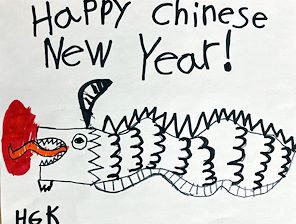 Happy Chinese
New Year!
HGK